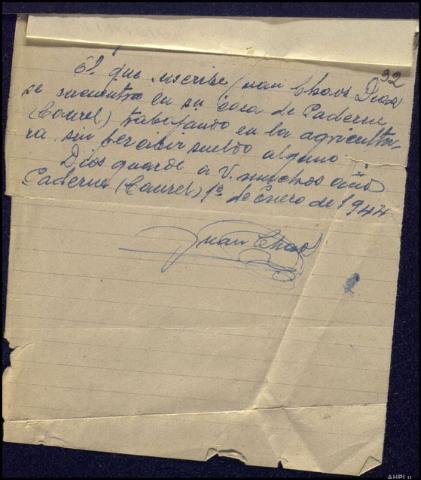 92
El que suscribe Juan Chaos Dias
se encuentra en su casa de Paderne
(Caurel) trabajando en la agricultu-
ra sin percibir sueldo alguno.
Dios guarde a V. muchos años
Paderne (Caurel) 1º de Enero de 1944
Juan Chaos
AHPLu